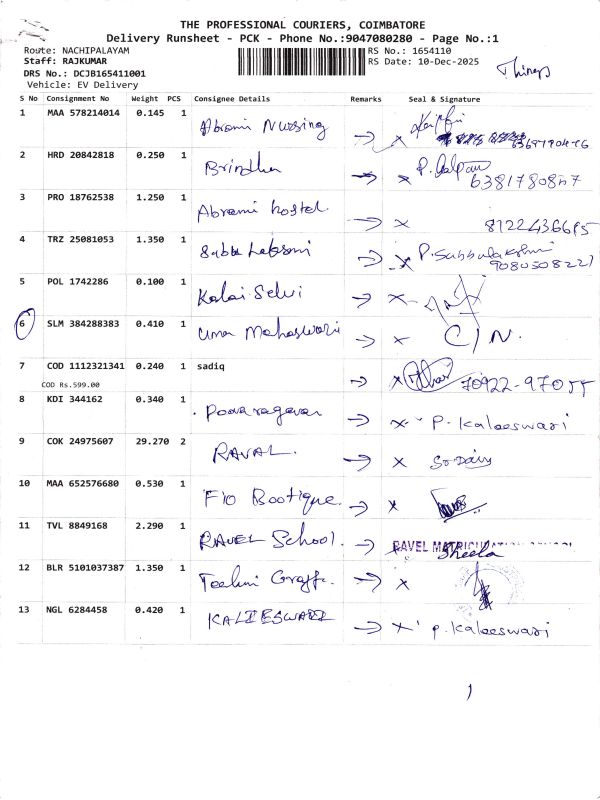 THE PROFESSIONAL COURIERS, COIMBATORE
Delivery Runsheet - PCK - Phone No.:9047080280 - Page No.:1
Route: NACHIPALAYAM
RS No.: 1654110
Staff: RAJKUMAR
RS Date: 10-Dec-2025
DRS No.: DCJB165411001
Vehicle: EV Delivery
S No Consignment No Weight PCS Consignee Details Remarks Seal & Signature
1 MAA 578214014 0.145 1 Abrami Nursing
2 HRD 20842818 0.250 1 Brindha
6381780847
3 PRO 18762538 1.250 1 Abrami hostel
8122436615
4 TRZ 25081053 1.350 1 P. Subbulakshmi
9080508221
5 POL 1742286 0.100 1 Kalai Selvi
6 SLM 384288383 0.410 1 Uma Maheswari C/N.
7 COD 1112321341 0.240 1 sadiq
COD Rs.599.00
70922-97055
8 KDI 344162 0.340 1 P. Kaleeswari
9 COK 24975607 29.270 2 RAVAL.
10 MAA 652576680 0.530 1 Fio Bootique
11 TVL 8849168 2.290 1 RAVEL School. RAVEL MATRICULATION SCHOOL
Sheela
12 BLR 5101037387 1.350 1
13 NGL 6284458 0.420 1 KALIESWARI P. Kaleeswari